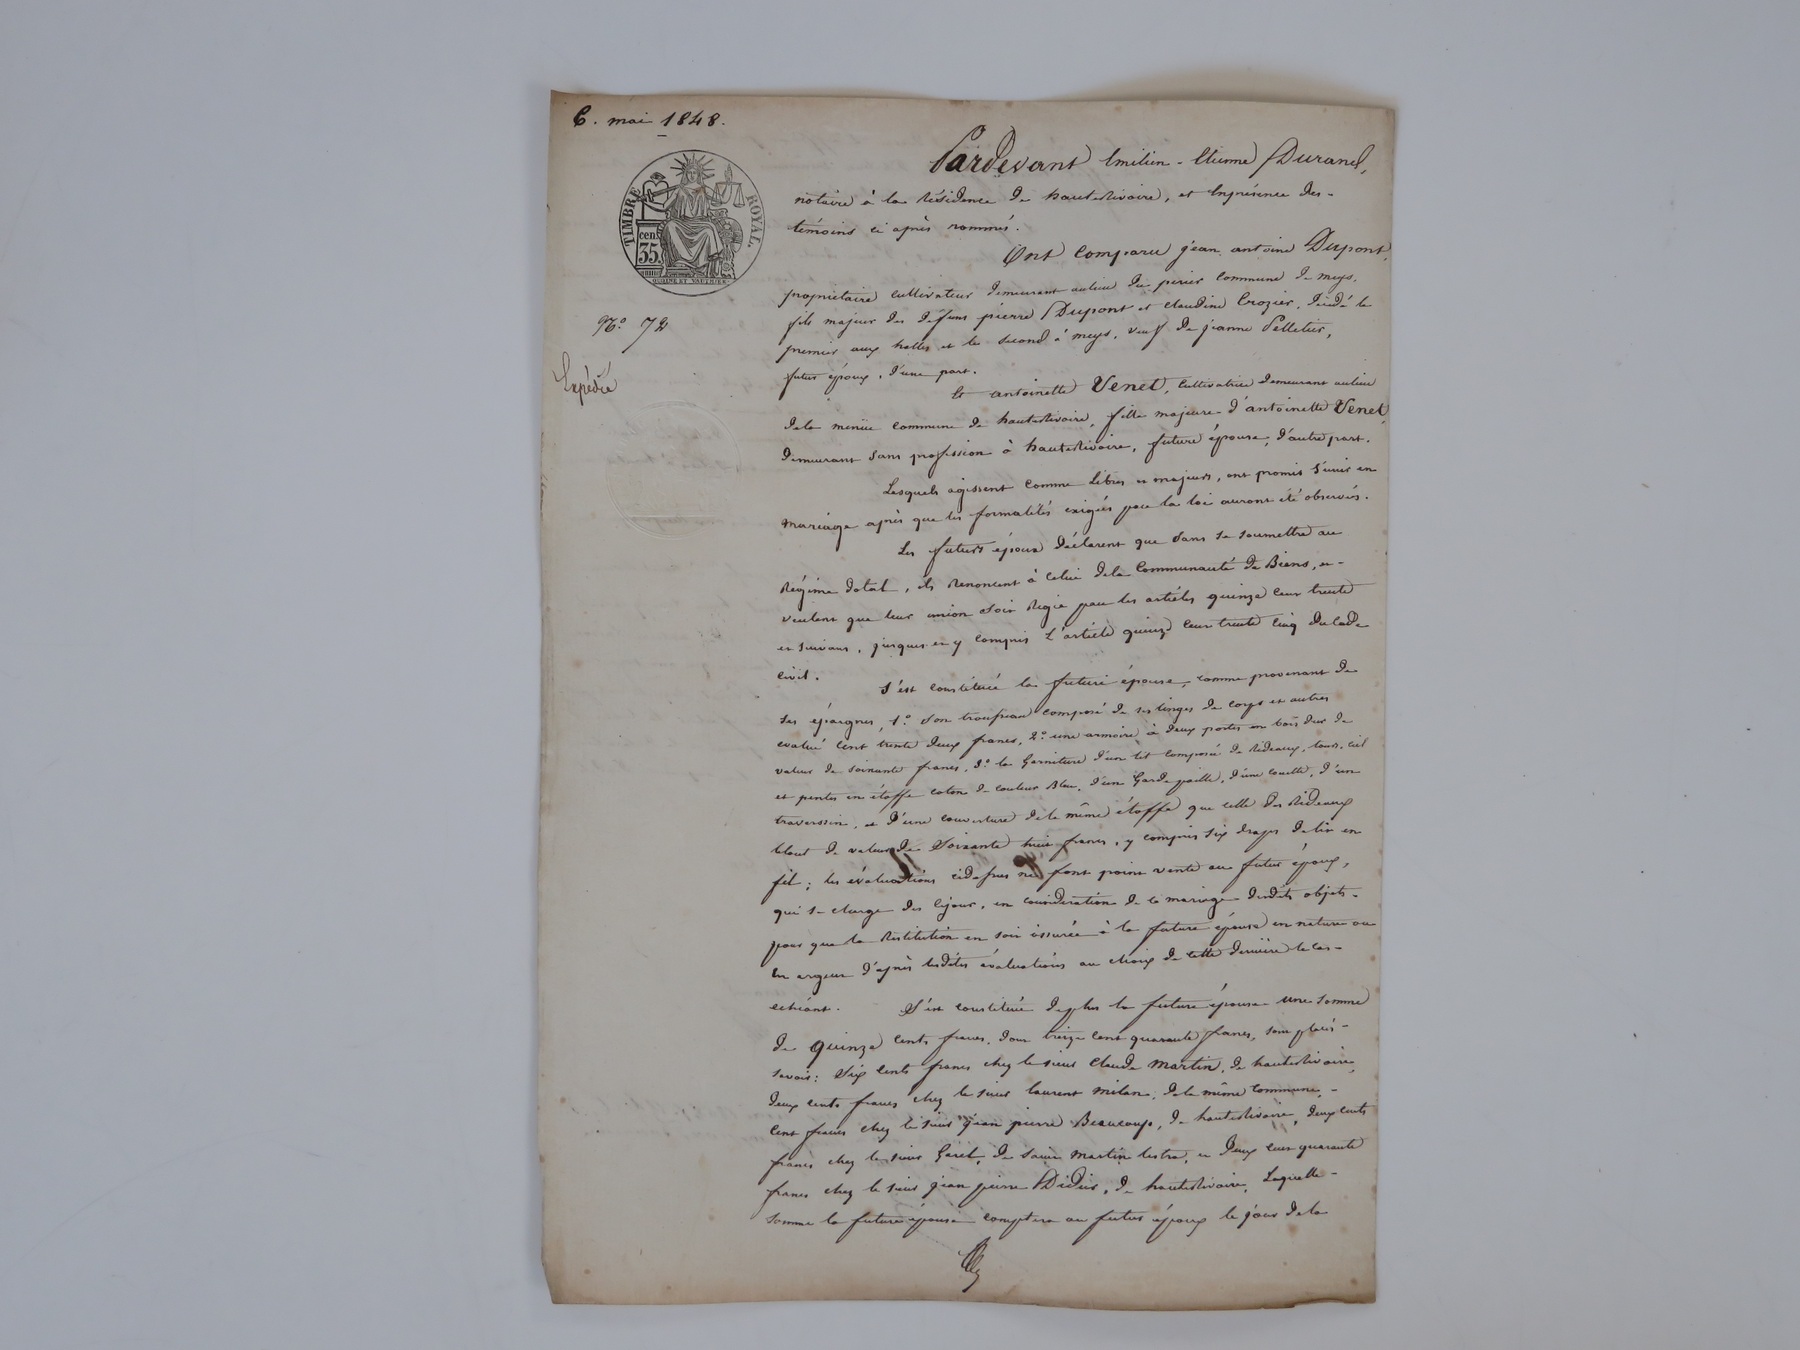 6. mai 1848.
TIMBRE ROYAL.
cens
35.
N.o 72
Expédié
Pardevant Emilien - Etienne Durand,
notaire à la Résidence de hauterivoire, et Enprésence des -
témoins ci après nommés.
Ont comparu jean antoine Dupont,
propriétaire cultivateur demeurant aulieu du perier commune de meys,
fils majeur des défunts pierre Dupont et claudine Crozier, décédé le
premier aux halles et le second à meys, veuf de jeanne Pelletier,
futur époux, d'une part.
Et antoinette Venet, Cultivatrice demeurant aulieu
dela menüe commune de hauterivoire, fille majeure d'antoinette Venet,
demeurant sans profession à hauterivoire, future épouse, d'autre part.
Lesquels agissent comme Libres et majeurs, ont promis s'unir en
mariage après que les formalités exigées par la loi auront été observées.
Les futurs époux déclarent que sans se soumettre au
Régime dotal, ils Renoncent à celui dela Communauté de Biens, et -
veulent que leur union soit Régie par les articles quinze cent trente
et suivans, jusques et y compris L'article quinze cent trente Cinq du Code
Civil.
S'est constituée la future épouse, comme provenant de
ses épargnes, 1.o son trousseau composé de ses linges de corps et autres
evalué cent trente deux francs, 2.o une armoire à deux portes en bois dur de
valeur de soixante francs, 3.o la Garniture d'un lit composé de Rideaux, tours, ciel
et pentes en étoffe coton de couleur Bleu, d'un Garde paille, d'une couette, d'un
traversin, et d'une couverture dela même étoffe que celle des Rideaux
letout de valeur de Soixante huit francs, y compris six draps de lit en
fil; les évaluations cidessus ne font point vente au futur époux,
qui se charge dès cejour, en considération de ce mariage desdits objets -
pour que la Restitution en soit assurée à la future épouse en nature ou
En argent d'après lesdites évaluations au choix de cette dernière le cas -
echéant. S'est constituée deplus la future épouse une somme
de Quinze cents francs, dont treize cent quarante francs, sont placés -
savoir: Six Cents francs chez le sieur Claude Martin, de hauterivoire,
deux cents francs chez le sieur laurent milan, dela même Commune, -
Cent francs chez le sieur jean pierre Beaucoup, de hauterivoire, deux cents
francs chez le sieur Garel, de saint Martin lestra, et Deux Cent quarante
francs chez le sieur jean pierre Didier, de hauterivoire, Laquelle -
somme la future épouse comptera au futur époux le jour dela